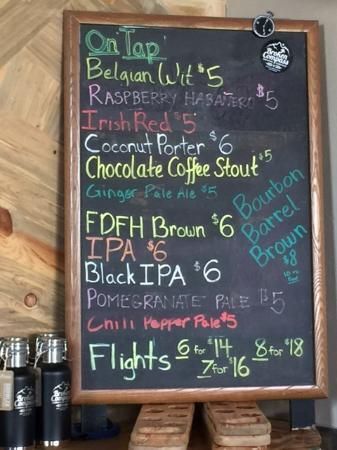 On Tap
Broken
Compass
Belgian Wit $5
RASPBERRY HABANERO $5
Irish Red $5
Coconut Porter $6
Chocolate Coffee Stout $5
Ginger Pale Ale $5
Bourbon
Barrel
Brown
$8
FDFH Brown $6
IPA $6
Black IPA $6
POMEGRANATE PALE $5
Chili Pepper Pale $5
Flights 6 for $14 8 for $18
7 for $16